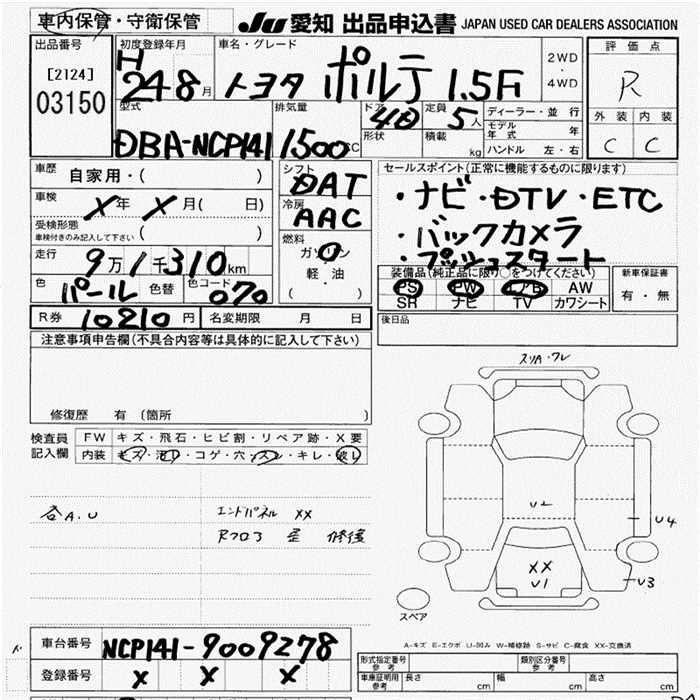 車内保管・守衛保管
JU 愛知 出品申込書 JAPAN USED CAR DEALERS ASSOCIATION
出品番号
[2124]
03150
初度登録年月
H
24 8月
車名・グレード
トヨタ ポルテ 1.5F
2WD
・
4WD
評価点
R
外装 内装
C C
型式
DBA-NCP141
排気量
1500cc
ドア
4D
形状
定員
5人
積載
kg
ディーラー・並行
モデル年式 年
ハンドル 左・右
車歴
自家用・( )
車検
X年 X月( 日)
受検形態
車検付きのみ記入して下さい ( )
走行
9万1千310km
色
パール
色替
色コード
070
シフト
DAT
冷房
AAC
燃料
ガソリン
軽油
( )
セールスポイント(正常に機能するものに限ります)
・ナビ・DTV・ETC
・バックカメラ
・プッシュスタート
装備品(純正品に限り○をつけてください)
PS PW エアB AW
SR ナビ TV カワシート
新車保証書
有・無
R券 10210円
名変期限 月 日
後日品
注意事項申告欄(不具合内容等は具体的に記入して下さい)
修復歴 有 (箇所 )
検査員
記入欄
FW キズ・飛石・ヒビ割・リペア跡・X要
内装 キズ・汚レ・コゲ・穴・スレ・キレ・破レ
各A.U
エンドパネル XX
Rフロア 歪 修復
スリA・ワレ
U2
U4
XX
U1
U3
スペア
A-キズ E-エクボ U-凹み W-補修跡 S-サビ C-腐食 XX-交換済
車台番号 NCP141-9009278
登録番号 X X X
形式指定番号
参考
類別区分番号
参考
車庫証明用
参考
長さ cm 幅 cm 高さ cm